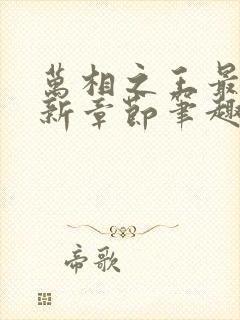 萬相之王最
新章節筆趣
帝歌